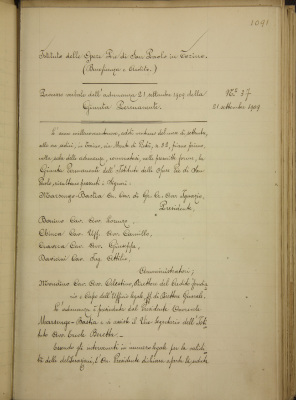 1091
Istituto delle Opere Pie di San Paolo in Torino
(Beneficenza e Credito.)
Processo verbale dell'adunanza 21 settembre 1909 della
Giunta Permanente.
N.° 37
21 settembre 1909
L'anno millenovecentonove, addì ventuno del mese di settembre,
alle ore sedici, in Torino, in Monte di Pietà, n. 32, primo piano,
nella sala delle adunanze, convocatasi, nelle prescritte forme, la
Giunta Permanente dell'Istituto delle Opere Pie di San
Paolo, risultano presenti i Signori:
Marsengo Bastia Cr. Cav. di Gr. Cr. Avv. Ignazio,
Presidente.
Bonino Cav. Avv. Lorenzo,
Chiesa Cav. Uff. Avv. Camillo,
Cravera Cav. Avv. Giuseppe,
Daviersi Cav. Ing. Attilio,
Amministratori;
Cav. Avv. Celestino, Direttore del Credito Fondia-
rio e Capo dell'Ufficio legale, ff. di Direttore Generale.
L'adunanza è presieduta dal Presidente
Marsengo-Bastia e vi assiste il Vice Segretario dell'Isti-
tuto Avv.
Essendo gli intervenuti in numero legale per la validi-
tà delle deliberazioni, il Sr. Presidente dichiara aperta la seduta